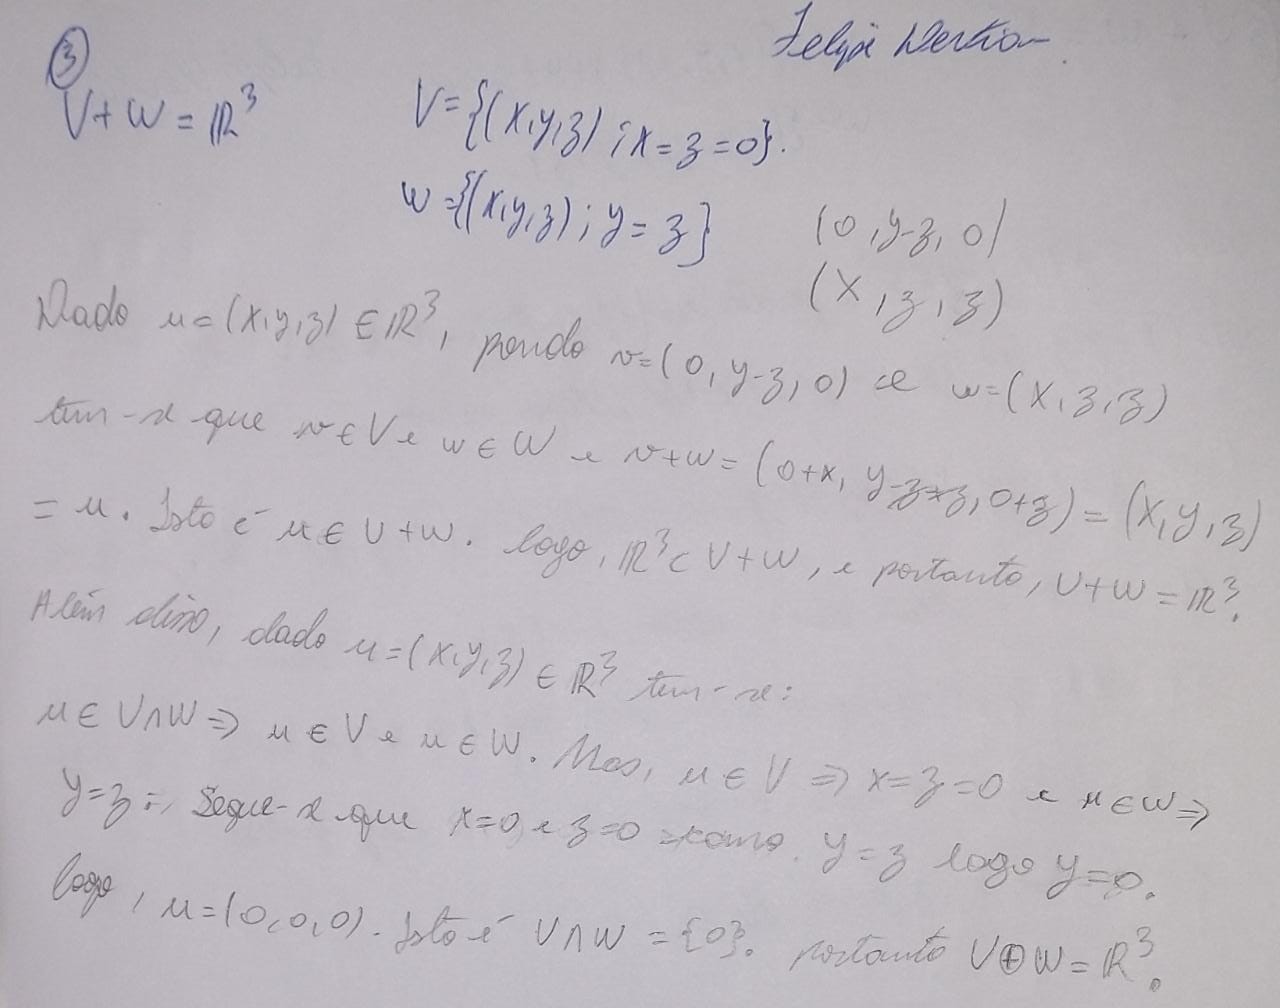 ③
Felipe
V+W=ℝ³ V={(x,y,z);x=z=0}.
W={(x,y,z);y=z}
(0,y-z,0)
(x,z,z)
Dado u=(x,y,z)∈ℝ³, pondo v=(0,y-z,0) e w=(x,z,z)
tem-se que v∈V e w∈W e v+w=(0+x, y-z+z, 0+z)=(x,y,z)
=u. Isto é u∈V+W. logo, ℝ³⊂V+W, e portanto, V+W=ℝ³.
Além disso, dado u=(x,y,z)∈ℝ³ tem-se:
u∈V∩W⇒ u∈V e u∈W. Mas, u∈V ⇒ x=z=0 e u∈W⇒
y=z Segue-se que x=0 e z=0 como y=z logo y=0.
logo, u=(0,0,0). Isto é V∩W={0}. portanto V⊕W=ℝ³.